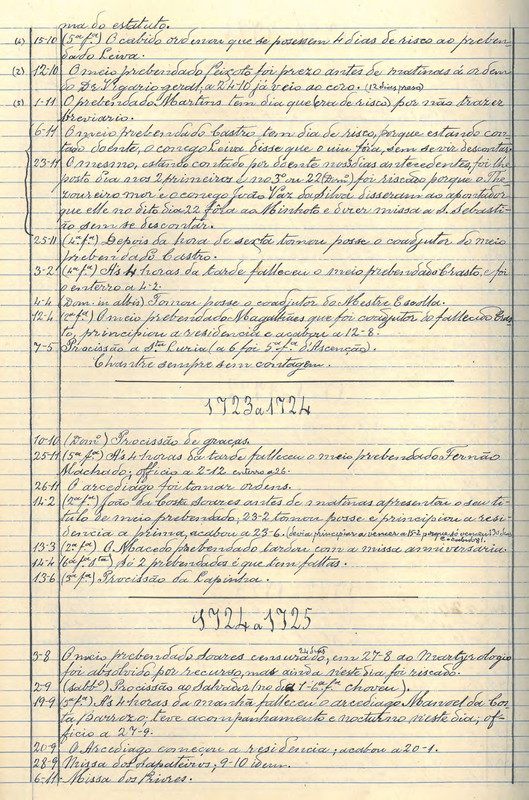 ma do estatuto.
(1) 15-10 (5ª fª) O cabido ordenou que se posessem 4 dias de risco ao preben-
dado Leiva.
(2) 12-10 O meio prebendado Peixoto foi prezo antes de matinas á ordem
do Dr. Vigario geral; a 24-10 já veio ao coro. (12 dias, preso)
(3) 1-11 O prebendado Martins tem dia que (era de risco) por não trazer
breviario.
6-11 O meio prebendado Castro tem dia de risco, porque estando con-
tado doente, o conego Leiva disse que o viu fóra, sem se vir descontar.
23-11 O mesmo, estando contado por doente nos dias antecedentes, foi lhe
posta Da nos 2 primeiros e no 3º ou 22 (Domº) foi riscado porque o The-
zoureiro mór e o conego João Vaz da Silva disseram ao apontador
que elle no dito dia 22 fôra ao Minhoto e dizer missa a S. Sebasti-
ão sem se descontar.
25-11 (4ª fª) Depois da hora de sexta tomou posse o coadjutor do meio
prebendado Castro.
3-2 (4ª fª) As 4 horas da tarde falleceu o meio prebendado Crasto, e foi
o enterro a 4-2.
4-4 (Dom. in albis) Tomou posse o coadjutor do Mestre Escolla.
12-4 (2ª fª) O meio prebendado Magalhães que foi coadjutor do fallecido Cras-
to, principiou a residencia e acabou a 12-8.
7-5 Procissão a Stª Luzia (a 6 foi 5ª fª d'Ascenção).
Chantre sempre sem contagem.
1723 a 1724
10-10 (Domº) Procissão de graças.
25-11 (5ª fª) As 4 horas da tarde falleceu o meio prebendado Fernão
Machado; officio a 2-12 enterro a 26.
26-11 O arcediago foi tomar ordens.
14-2 (2ª fª) João da Costa Soares antes de matinas apresentou o seu ti-
tulo de meio prebendado, 23-2 tomou posse e principiou a resi-
dencia a prima, acabou a 23-6. (devia principiar a vencer a 15-2 porque só venceu 130 dias
13-3 (2ª fª) O Macedo prebendado tardou com a missa anniversaria.
14-4 (6ª fª stª) Só 2 prebendados é que tem faltas.
13-6 (3ª fª) Procissão da Lapinha.
1724 a 1725
3-8 O meio prebendado Soares censurado, 24 dias, em 27-8 ao Martyrologio
foi absolvido por recurso, mas ainda neste dia foi riscado.
2-9 (sabbº) Procissão ao Salvador (no dia 1-6ª fª choveu).
19-9 (3ª fª) As 4 horas da manhã falleceu o arcediago Manoel da Cos-
ta Barrozo; teve acompanhamento e nocturno neste dia; of-
ficio a 27-9.
20-9 O Arcediago começou a residencia; acabou a 20-1.
28-9 Missa dos sapateiros; 9-10 idem.
6-11 Missa dos Livres.